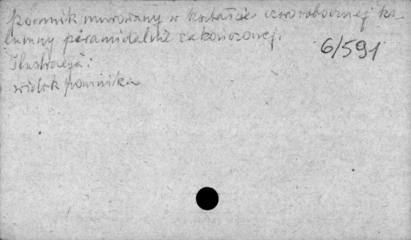 pomnik murowany w kształcie czworobocznej ko
lumny piramidalnie zakończonej.
6/591
Ilustracja:
widok pomnika